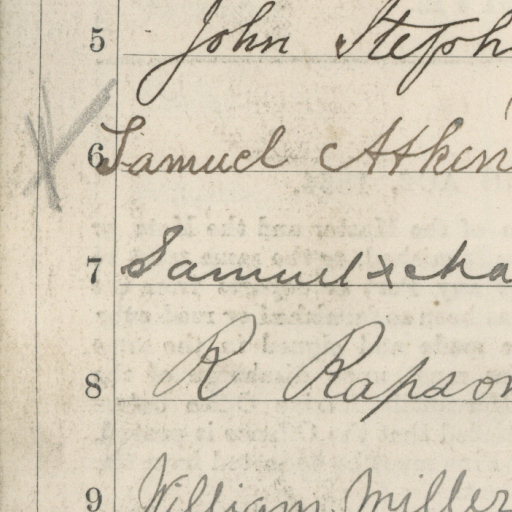 5 John Steph
6 Samuel Atkin
7 Samuel x cha
8 R Rapson
9 William Miller